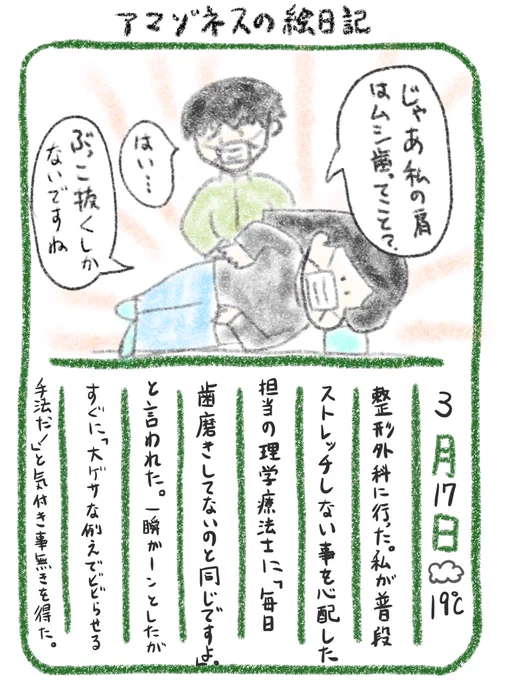 アマゾネスの絵日記
じゃあ私の肩
はムシ歯ってこと?
はい…
ぶっこ抜くしか
ないですね
3月17日 19℃
整形外科に行った。私が普段
ストレッチしない事を心配した
担当の理学療法士に、「毎日
歯磨きしてないのと同じですよ。」
と言われた。一瞬ガーンとしたが
すぐに「大ゲサな例えでビビらせる
手法だ!」と気付き事無きを得た。